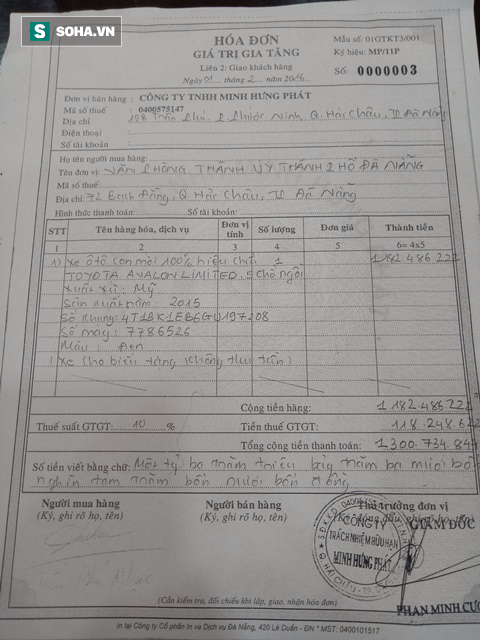 SOHA.VN
HÓA ĐƠN
GIÁ TRỊ GIA TĂNG
Liên 2: Giao khách hàng
Ngày 01 tháng 2 năm 2016
Mẫu số: 01GTKT3/001
Ký hiệu: MP/11P
Số: 0000003
Đơn vị bán hàng : CÔNG TY TNHH MINH HƯNG PHÁT
Mã số thuế : 0400575147
Địa chỉ : 198 Trần Phú, P. Phước Ninh Q. Hải Châu, TP Đà Nẵng
Điện thoại :
Số tài khoản :
Họ tên người mua hàng:
Tên đơn vị: VĂN PHÒNG THÀNH ỦY THÀNH PHỐ ĐÀ NẴNG
Mã số thuế:
Địa chỉ: 72 Bạch Đằng, Q Hải Châu, TP Đà Nẵng
Hình thức thanh toán: Số tài khoản:
STT Tên hàng hóa, dịch vụ Đơn vị tính Số lượng Đơn giá Thành tiền
1 2 3 4 5 6= 4x5
1) Xe ôtô con mới 100% hiệu 1 1.182.486.222
TOYOTA AVALON LIMITED, 5 chỗ ngồi
Xuất xứ: Mỹ
Sản xuất năm: 2015
Số khung: 4T1BK1EB6GU197208
Số máy: 7786526
Màu: Đen
(Xe cho biếu tặng không thu tiền)
Cộng tiền hàng: 1.182.486.222
Thuế suất GTGT: 10 % Tiền thuế GTGT: 118.248.622
Tổng cộng tiền thanh toán: 1.300.734.844
Số tiền viết bằng chữ: Một tỷ ba trăm triệu bảy trăm ba mươi bốn
nghìn tám trăm bốn mươi bốn đồng
Người mua hàng Người bán hàng Thủ trưởng đơn vị
(Ký, ghi rõ họ, tên) (Ký, ghi rõ họ, tên)
GIÁM ĐỐC
CÔNG TY
TRÁCH NHIỆM HỮU HẠN
MINH HƯNG PHÁT
PHAN MINH CƯ
(Cần kiểm tra, đối chiếu khi lập, giao, nhận hóa đơn)
in tại Công ty Cổ phần In và Dịch vụ Đà Nẵng, 420 Lê Duẩn - ĐN * MST: 0400101517